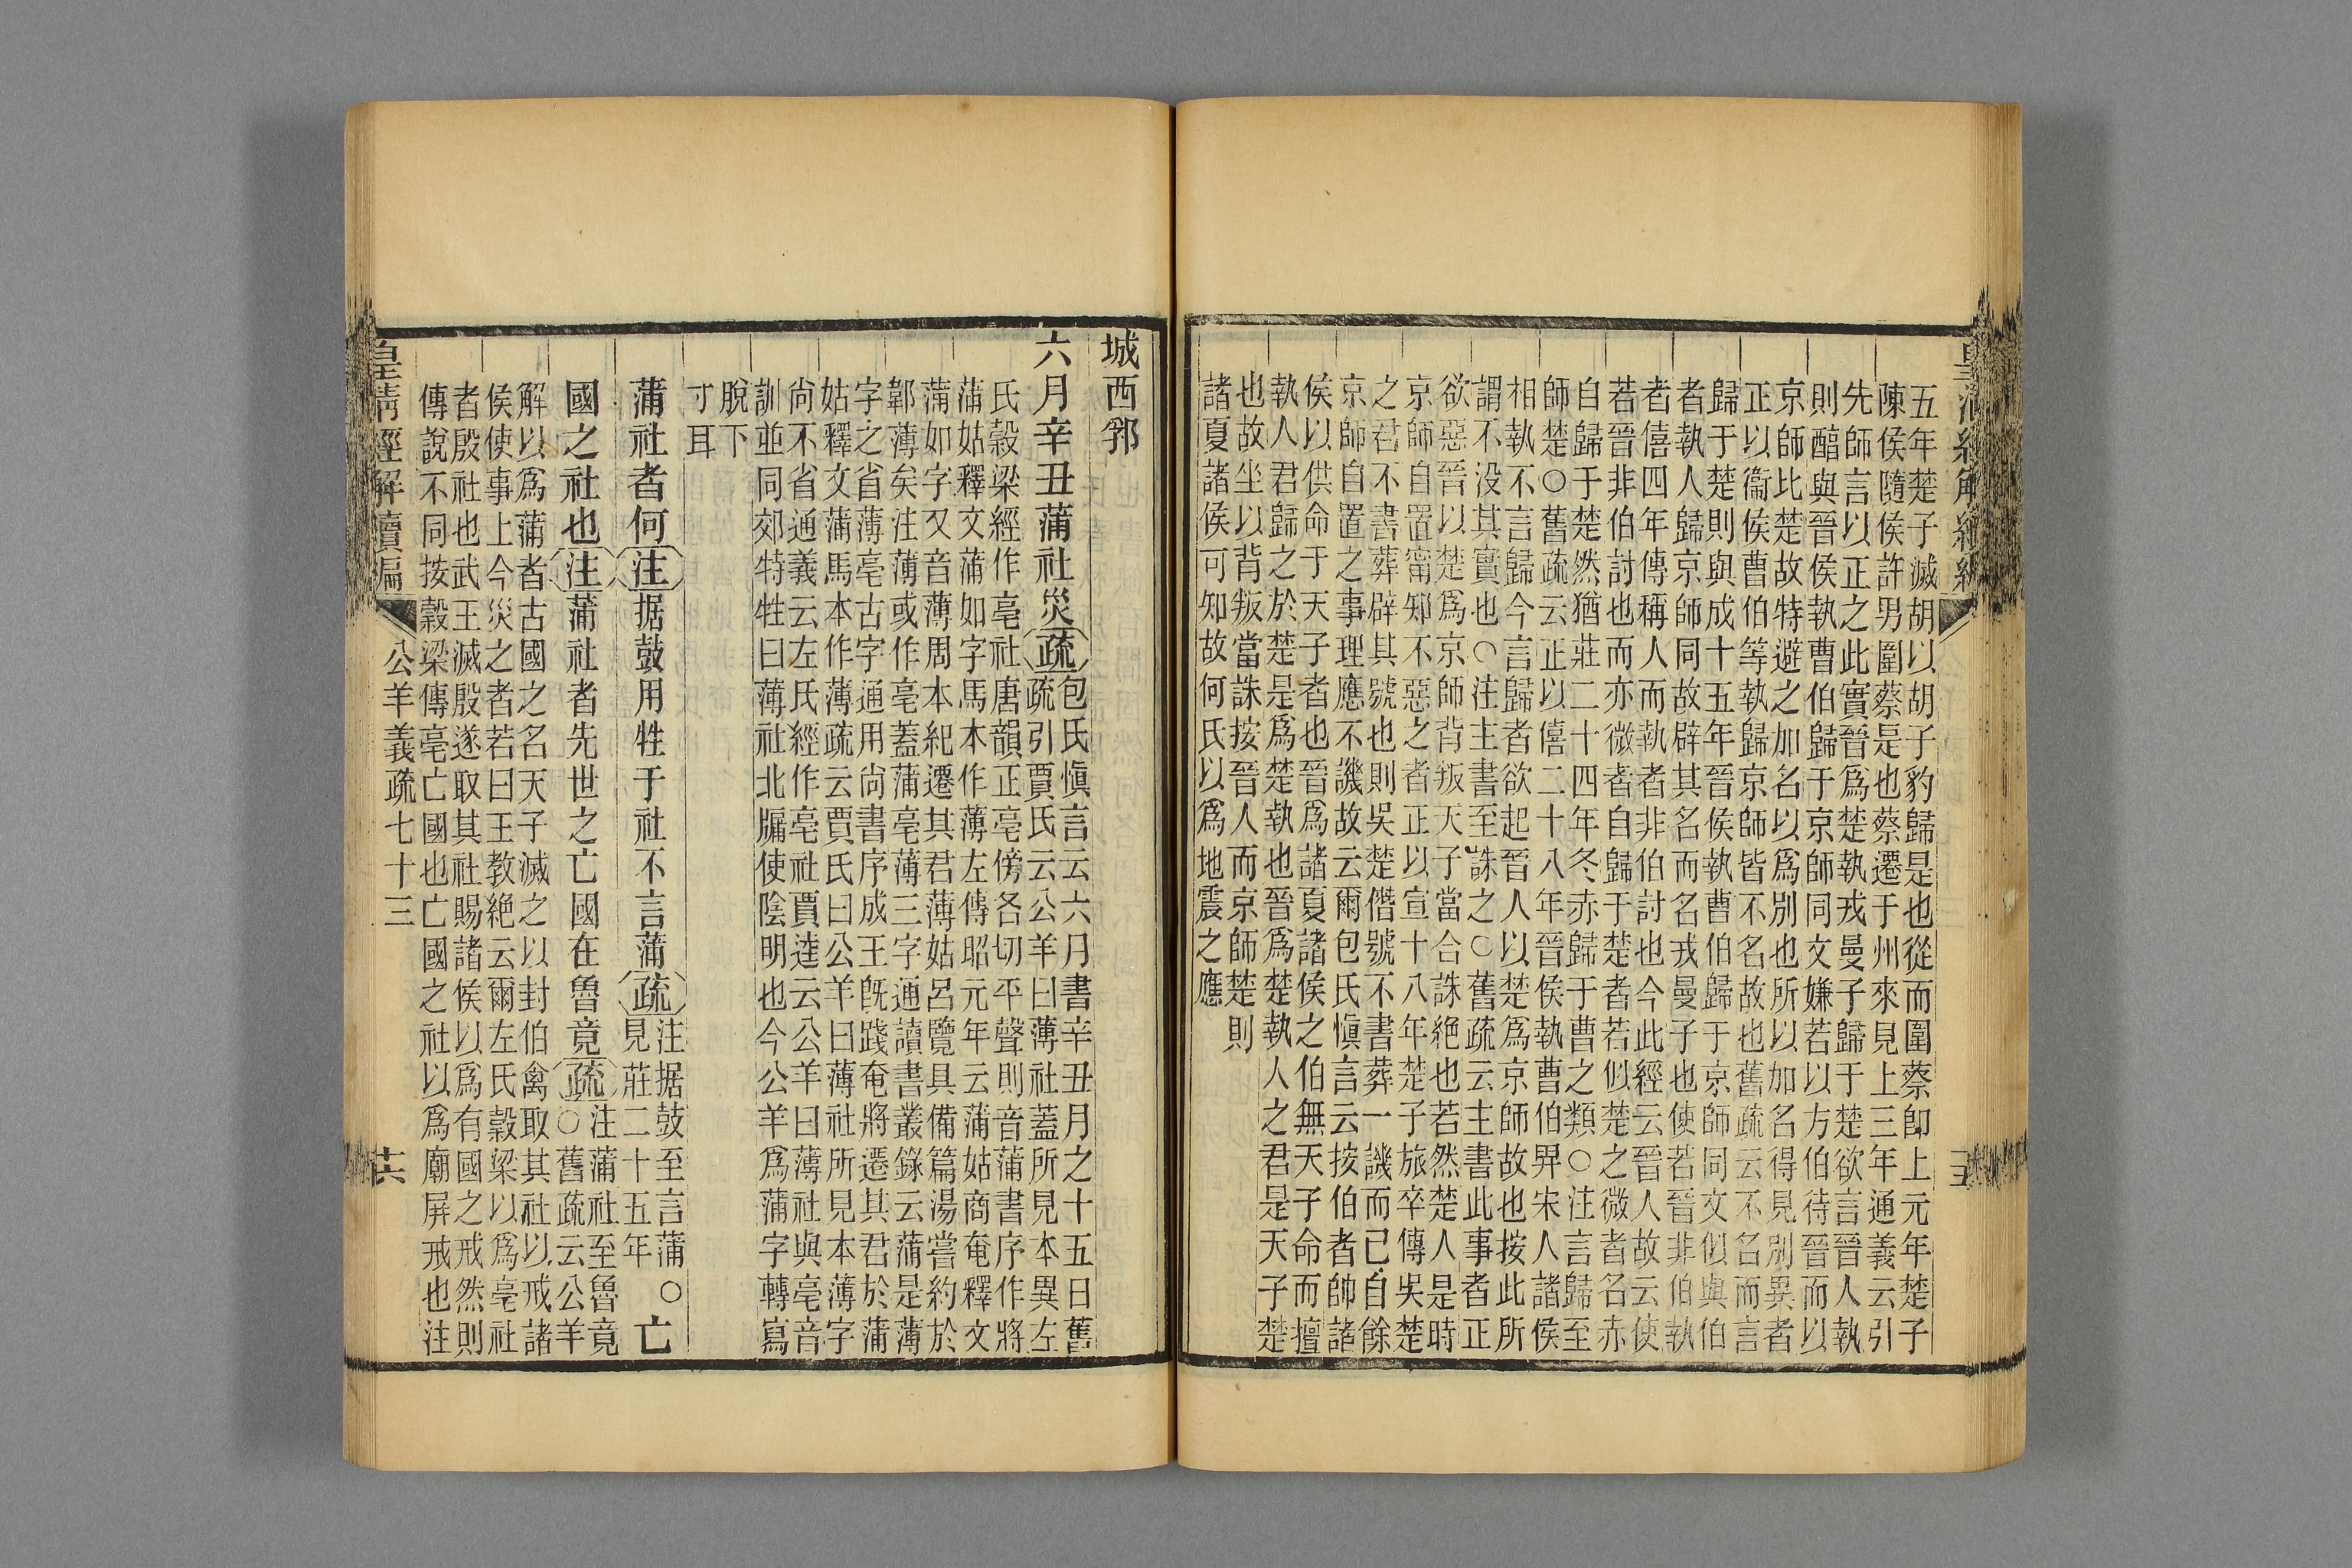 皇清經解續編
十五
五年楚子滅胡以胡子豹歸是也從而圍蔡卽上元年楚子
陳侯隨侯許男圍蔡是也蔡遷于州來見上三年通義云引
先師言以正之此實晉爲楚執戎曼子歸于楚欲言晉人執
則醅與晉侯執曹伯歸于京師同文嫌若以方伯待晉而以
京師比楚故特避之加名以爲別也所以加名得見別異者
正以衞侯曹伯等執歸京師皆不名故也舊疏云不名而言
歸于楚則與成十五年晉侯執曹伯歸于京師同文似與伯
者執人歸京師同故辟其名而名戎曼子也使若晉非伯執
者僖四年傳稱人而執者非伯討也今此經云晉人故云使
若晉非伯討也而亦微者自歸于楚者若似楚之微者名赤
自歸于楚然猶莊二十四年冬赤歸于曹之類○注言歸至
師楚○舊疏云正以僖二十八年晉侯執曹伯畀宋人諸侯
相執不言歸今言歸者欲起晉人以楚爲京師故也按此所
謂不没其實也○注主書至誅之○舊疏云主書此事者正
欲惡晉以楚爲京師背叛天子當合誅絕也若然楚人是時
京師自置甯知不惡之者正以宣十八年楚子旅卒傳吳楚
之君不書葬辟其號也則吳楚僭號不書葬一譏而已自餘
京師自置之事理應不譏故云爾包氏愼言云按伯者帥諸
侯以供命于天子者也晉爲諸夏諸侯之伯無天子命而擅
執人君歸之於楚是爲楚執也晉爲楚執人之君是天子楚
也故坐以背叛當誅按晉人而京師楚則
諸夏諸侯可知故何氏以爲地震之應
城西郛
六月辛丑蒲社災疏包氏愼言云六月書辛丑月之十五日舊
疏引賈氏云公羊曰薄社蓋所見本異左
氏穀梁經作亳社唐韻正亳傍各切平聲則音蒲書序作將
蒲姑釋文蒲如字馬本作薄左傳昭元年云蒲姑商奄釋文
蒲如字又音薄周本紀遷其君薄姑呂覽具備篇湯嘗約於
鄣薄矣注薄或作亳蓋蒲亳薄三字通讀書叢錄云蒲是薄
字之省薄亳古字通用尚書序成王既踐奄將遷其君於蒲
姑釋文蒲馬本作薄疏云賈氏曰公羊曰薄社所見本薄字
尚不省通義云左氏經作亳社賈逵云公羊曰薄社與亳音
訓並同郊特牲曰薄社北牖使陰明也今公羊爲蒲字轉寫
脫下
寸耳
蒲社者何注据鼓用牲于社不言蒲疏注据鼓至言蒲○
見莊二十五年
亡
國之社也注蒲社者先世之亡國在魯竟疏注蒲社至魯竟
○舊疏云公羊
解以爲蒲者古國之名天子滅之以封伯禽取其社以戒諸
侯使事上今災之者若曰王教絕云爾左氏穀梁以爲亳社
者殷社也武王滅殷遂取其社賜諸侯以爲有國之戒然則
傳說不同按穀梁傳亳亡國也亡國之社以爲廟屏戒也注
皇清經解續編
公羊義疏七十三
十六